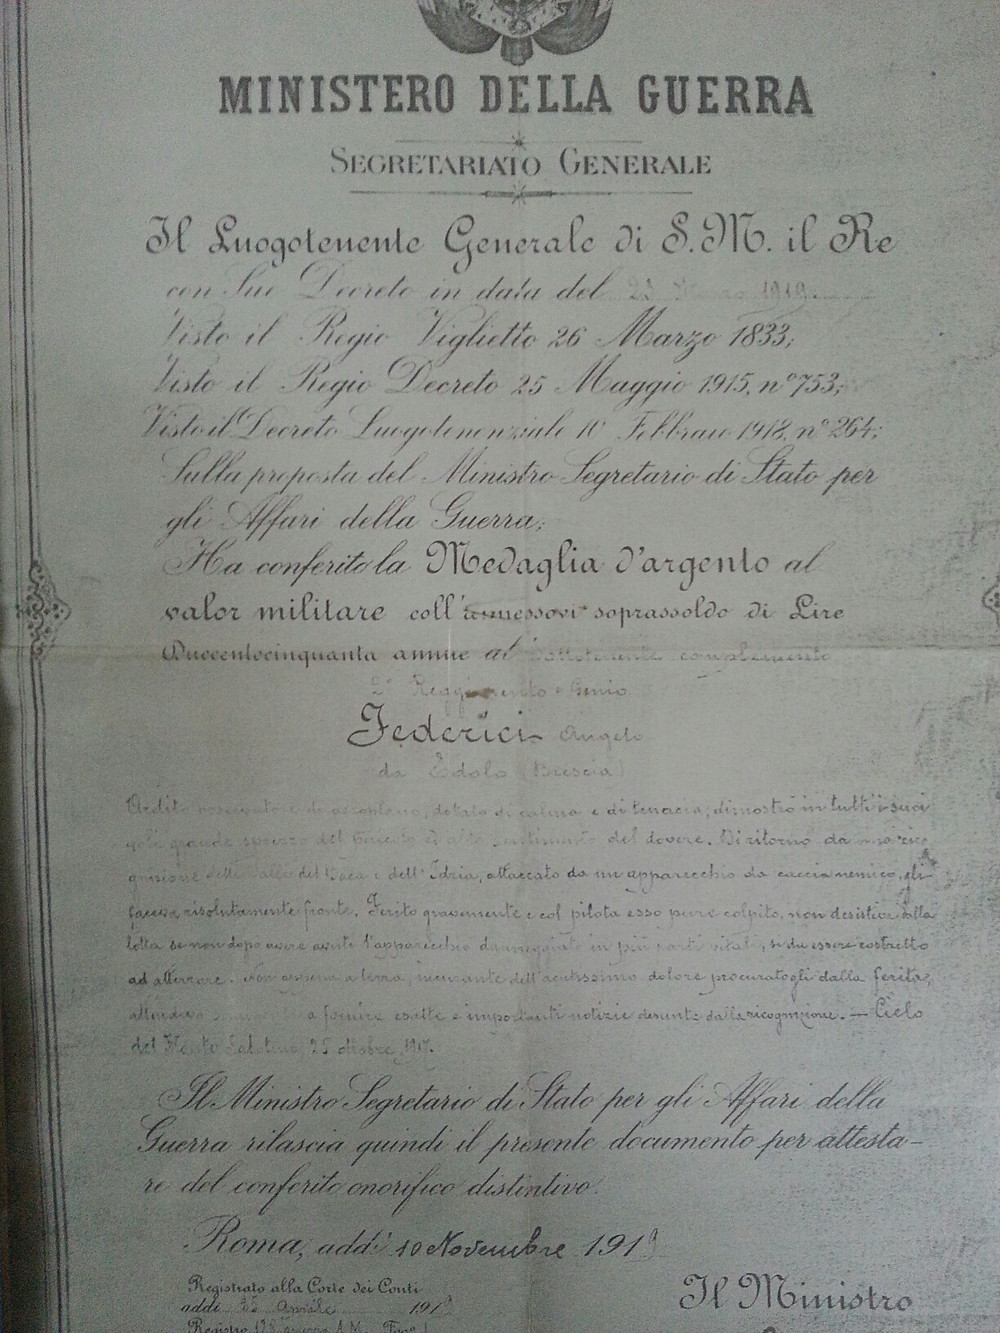 MINISTERO DELLA GUERRA
SEGRETARIATO GENERALE
Il Luogotenente Generale di S. M. il Re
con Suo Decreto in data del 23 Marzo 1919.
Visto il Regio Viglietto 26 Marzo 1833;
Visto il Regio Decreto 25 Maggio 1915, n° 753;
Visto il Decreto Luogotenenziale 10 Febbraio 1918, n° 264;
Sulla proposta del Ministro Segretario di Stato per
gli Affari della Guerra;
Ha conferito la Medaglia d'argento al
valor militare coll'annessovi soprassoldo di Lire
Duecentocinquanta annue al sottotenente complemento
2° Reggimento Genio
Federici Angelo
da Edolo (Brescia)
Ardito osservatore di aeroplano, dotato di calma e di tenacia, dimostrò in tutti i suoi
voli grande sprezzo del pericolo ed alto sentimento del dovere. Di ritorno da una rico-
gnizione delle valli del Baca e dell'Idria, attaccato da un apparecchio da caccia nemico, gli
faceva risolutamente fronte. Ferito gravemente e col pilota esso pure colpito, non desisteva dalla
lotta se non dopo avere avuto l'apparecchio danneggiato in più parti vitali, sì da essere costretto
ad atterrare. Non appena a terra, incurante dell'acutissimo dolore procuratogli dalla ferita,
a fornire esatte e importanti notizie desunte dalla ricognizione. — Cielo
del Monte 25 ottobre 1917.
Il Ministro Segretario di Stato per gli Affari della
Guerra rilascia quindi il presente documento per attesta-
re del conferito onorifico distintivo.
Roma, addì 10 Novembre 1919
Registrato alla Corte dei Conti
addì 25 Aprile 1919
Il Ministro
Registro 128